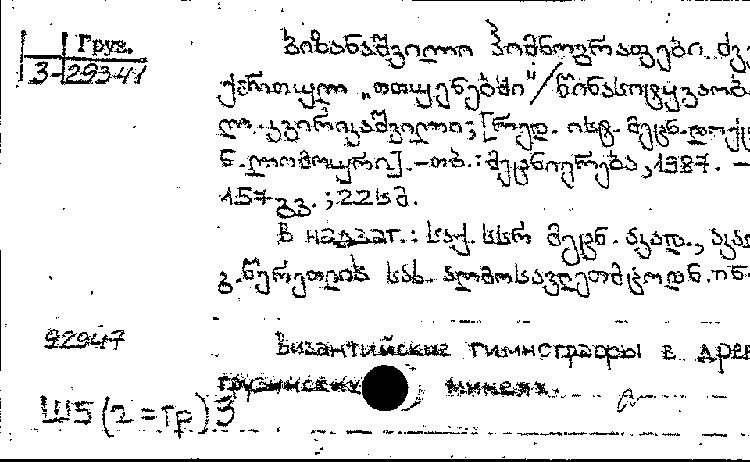 Груз.
3-29341
ბიზანტიელი ჰიმნოგრაფები ძვე
ქართულ „თთვენებში“ / წინასიტყვაობა
ლ. კვირიკაშვილი; [რედ. ისტ. მეცნ. დოქტ
ნ. ლომოური]. – თბ. : მეცნიერება, 1987. –
157 გვ. ; 22 სმ.
В надзаг.: საქ. სსრ მეცნ. აკად., აკად
გ. წერეთლის სახ. აღმოსავლეთმცოდნ. ინ-
92947
Византийские гимнографы в древ
грузинских минеях.
Ш5(2=Гр)3